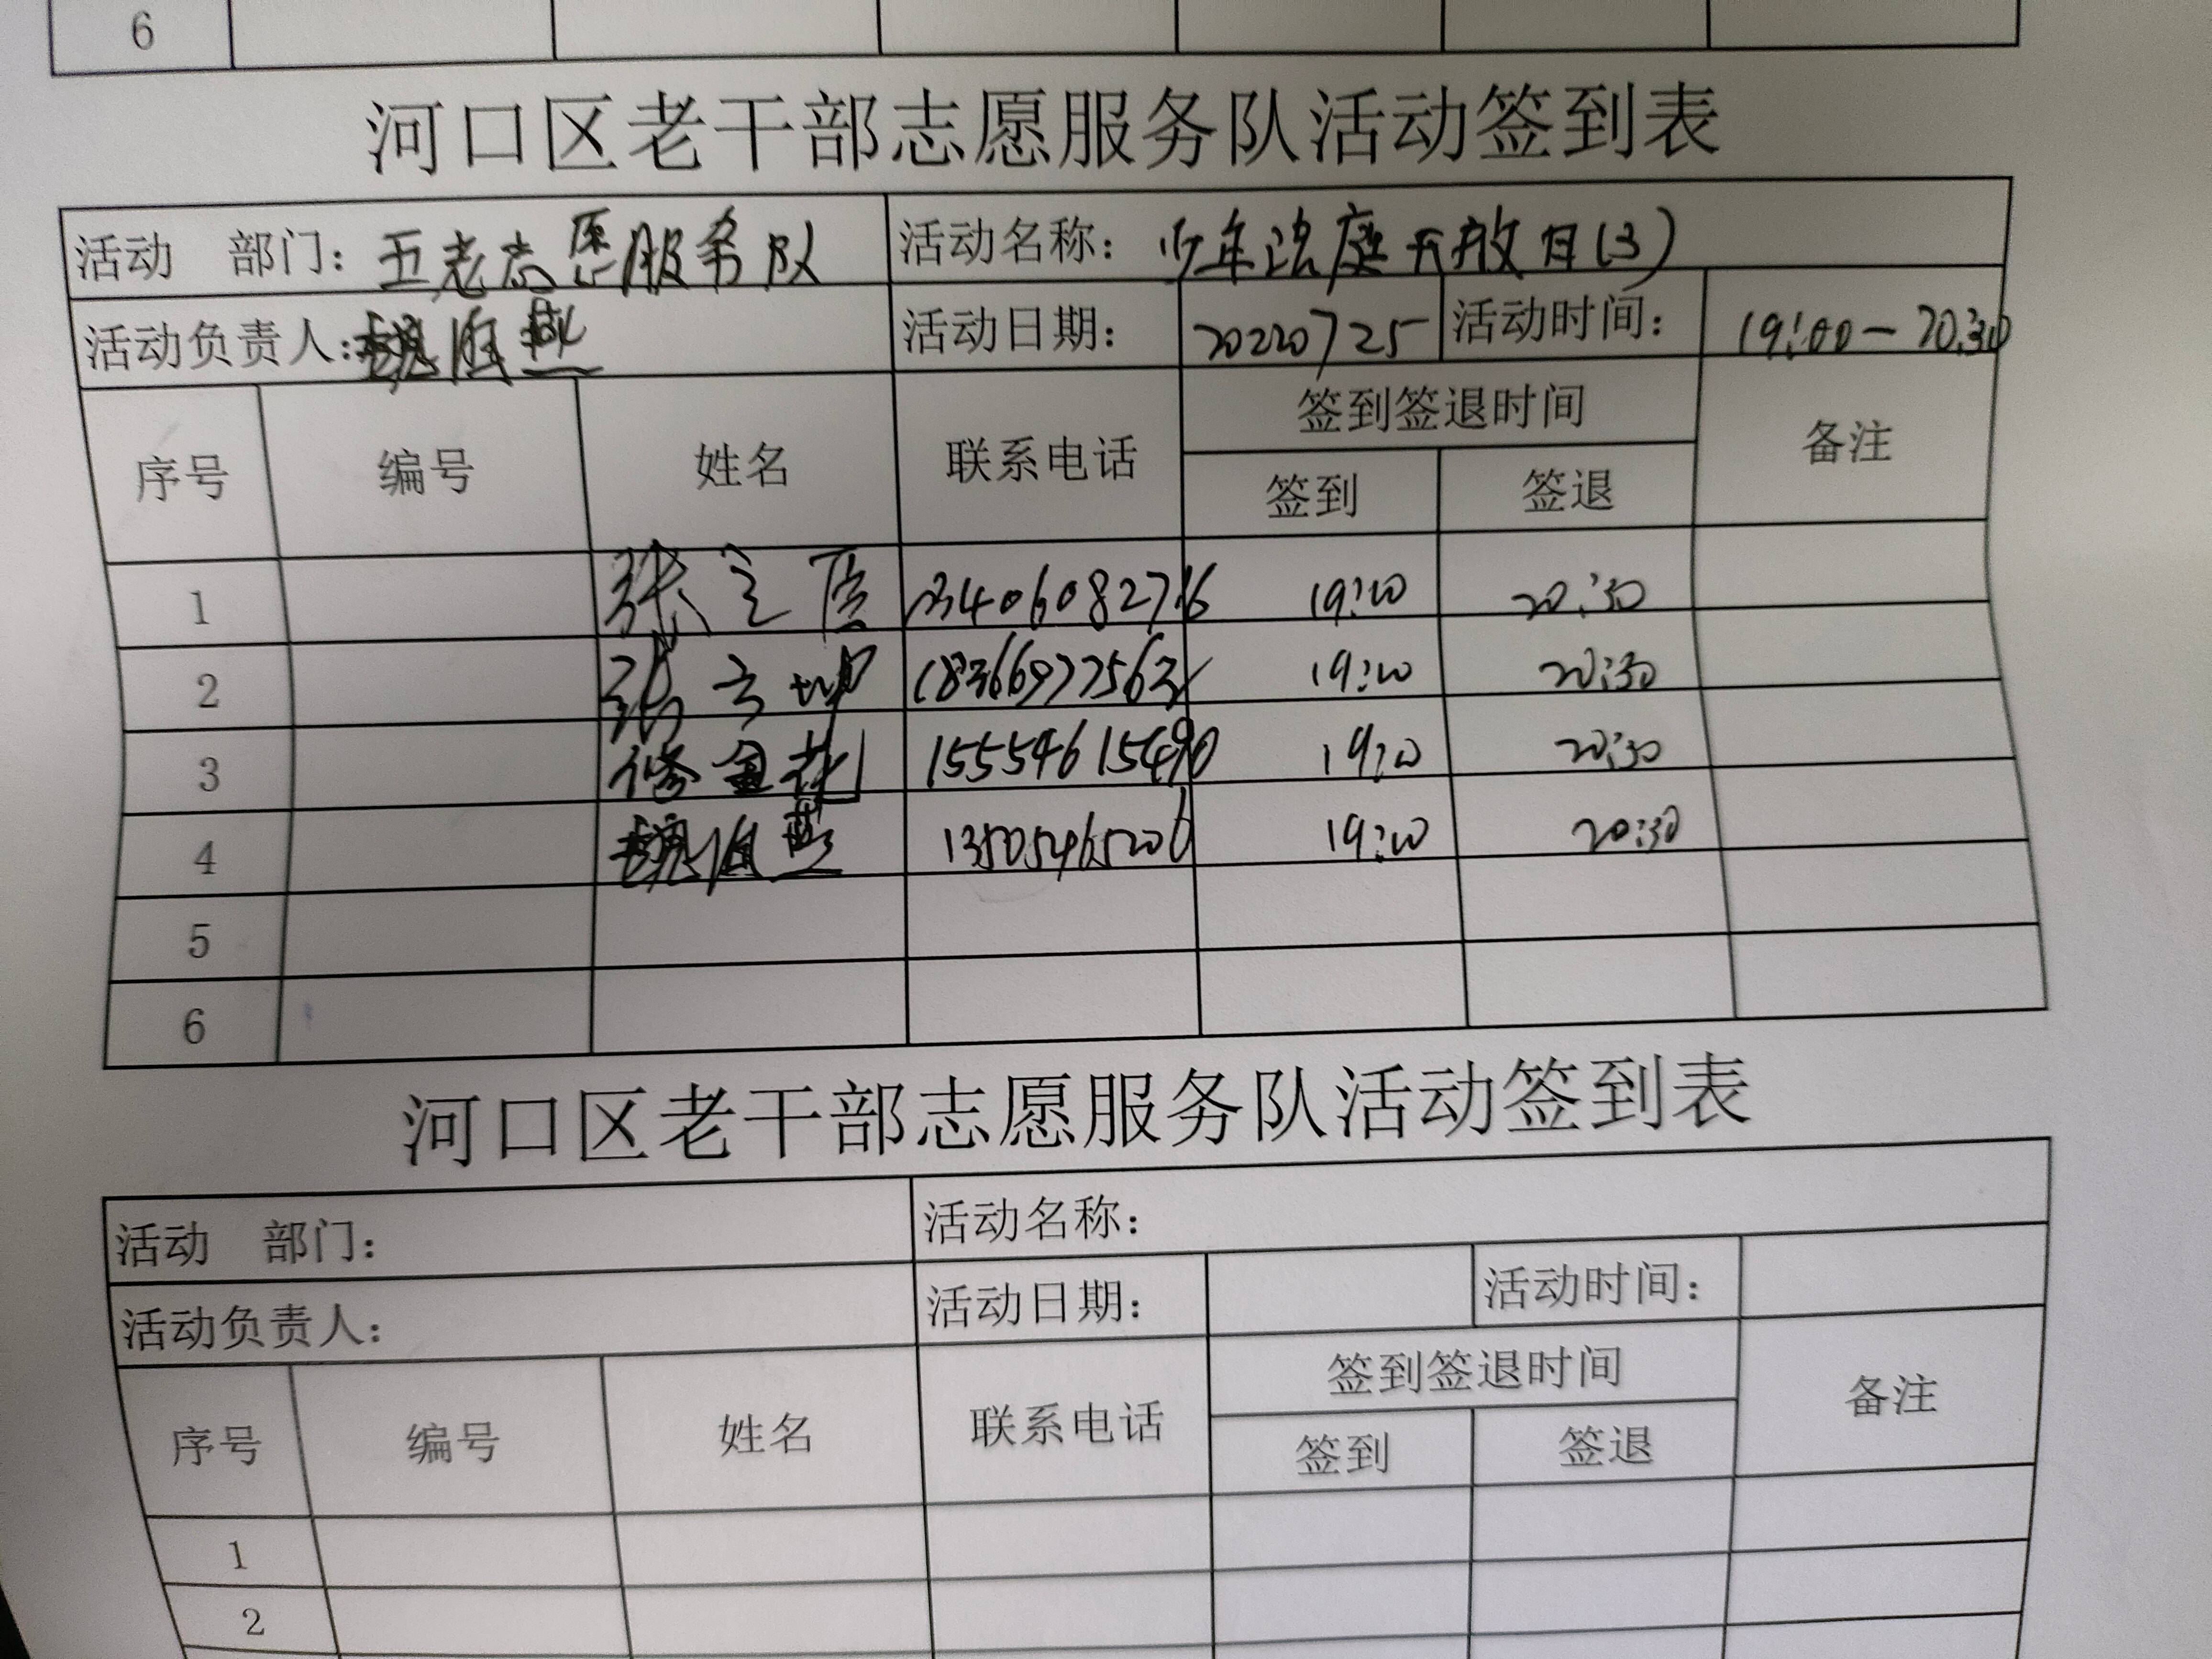 6
河口区老干部志愿服务队活动签到表
活动 部门: 五老志愿服务队 活动名称: 少年法庭开放日(3)
活动负责人: 活动日期: 20220725 活动时间: 19:00-20:30
序号 编号 姓名 联系电话 签到签退时间 备注
签到 签退
1 张 19:20 20:30
2 张 19:20 20:30
3 修金花 15554615490 19:20 20:30
4 13505465206 19:20 20:30
5
6
河口区老干部志愿服务队活动签到表
活动 部门: 活动名称:
活动负责人: 活动日期: 活动时间:
序号 编号 姓名 联系电话 签到签退时间 备注
签到 签退
1
2